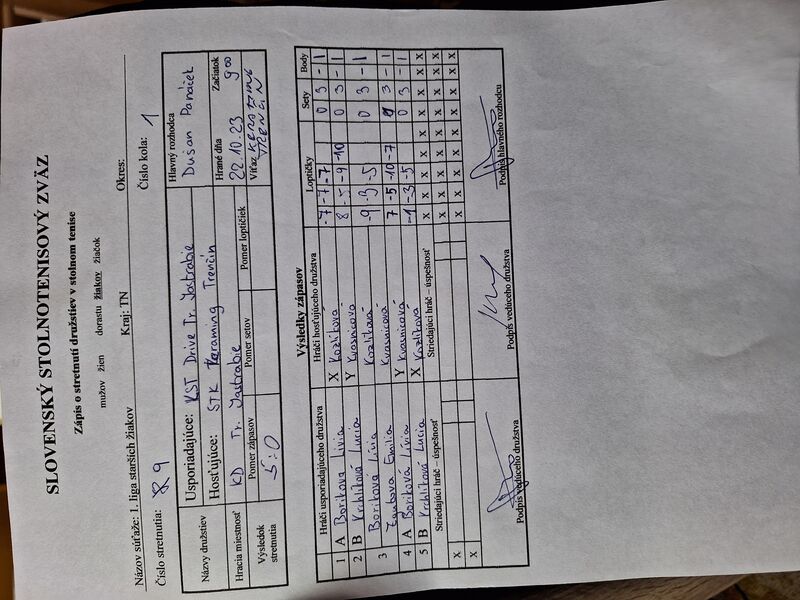 SLOVENSKÝ STOLNOTENISOVÝ ZVÄZ
Zápis o stretnutí družstiev v stolnom tenise
mužov žien dorastu žiakov žiačok
Názov súťaže: 1. liga starších žiakov Kraj: TN Okres:
Číslo stretnutia: Číslo kola: 1
Názvy družstiev Usporiadajúce: KST Drive Tr. Jastrabie Hlavný rozhodca
Hosťujúce: STK Keraming Trenčín Dušan Panáček
Hracia miestnosť KD Tr. Jastrabie Hrané dňa Začiatok
22.10.23 9 00
Výsledok stretnutia Pomer zápasov Pomer setov Pomer loptičiek Víťaz KERAMING TRENČÍN
5:0
Výsledky zápasov
Hráči usporiadajúceho družstva Hráči hosťujúceho družstva Loptičky Sety Body
1 A Boriková Lívia X Kozlíková -7 -7 -7 0 3 - 1
2 B Krchlíková Lucia Y Kvasnicová 8 -5 -9 -10 0 3 - 1
3 Boriková Lívia Kozlíková -9 -3 -5 0 3 - 1
Emília Kvasnicová 7 -5 -10 -7 0 3 - 1
4 A Boriková Lívia Y Kvasnicová -1 -3 -5 0 3 - 1
5 B Krchlíková Lucia X Kozlíková X X X X X X X X X
Striedajúci hráč – úspešnosť Striedajúci hráč – úspešnosť X X X X X X X X X
X X X X X X X X X X
X X X X X X X X X X
Podpis vedúceho družstva Podpis vedúceho družstva Podpis hlavného rozhodcu